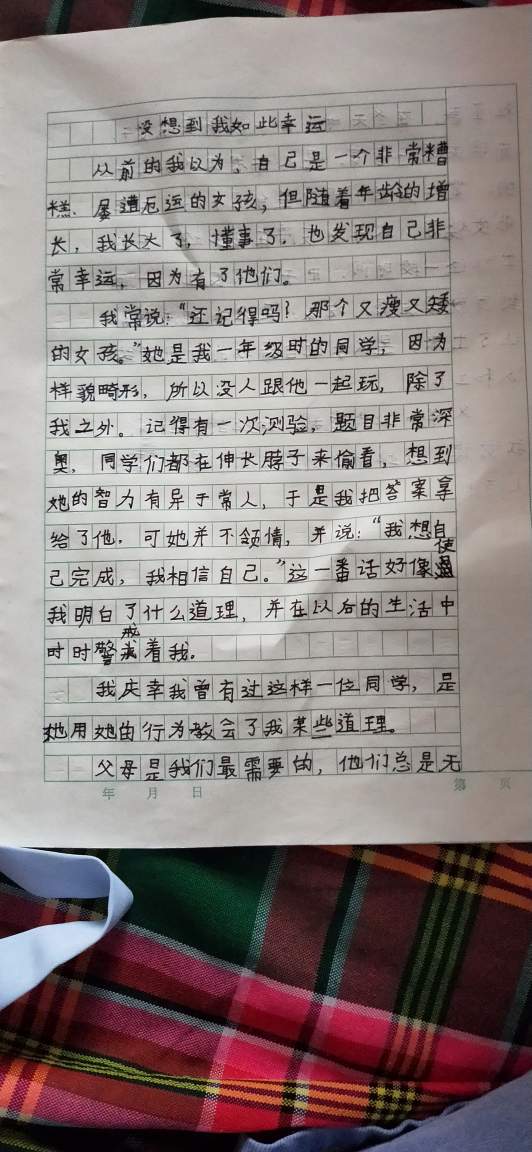 没想到我如此幸运
从前的我以为，自己是一个非常糟
糕、屡遭厄运的女孩，但随着年龄的增
长，我长大了，懂事了，也发现自己非
常幸运，因为有了他们。
我常说：“还记得吗？那个又瘦又矮
的女孩。”她是我一年级时的同学，因为
样貌畸形，所以没人跟他一起玩，除了
我之外。记得有一次测验，题目非常深
奥，同学们都在伸长脖子来偷看，想到
她的智力有异于常人，于是我把答案拿
给了他，可她并不领情，并说：“我想自
己完成，我相信自己。”这一番话好像使
我明白了什么道理，并在以后的生活中
时时警戒着我。
我庆幸我曾有过这样一位同学，是
她用她的行为教会了我某些道理。
父母是我们最需要的，他们总是无
年 月 日
第 页